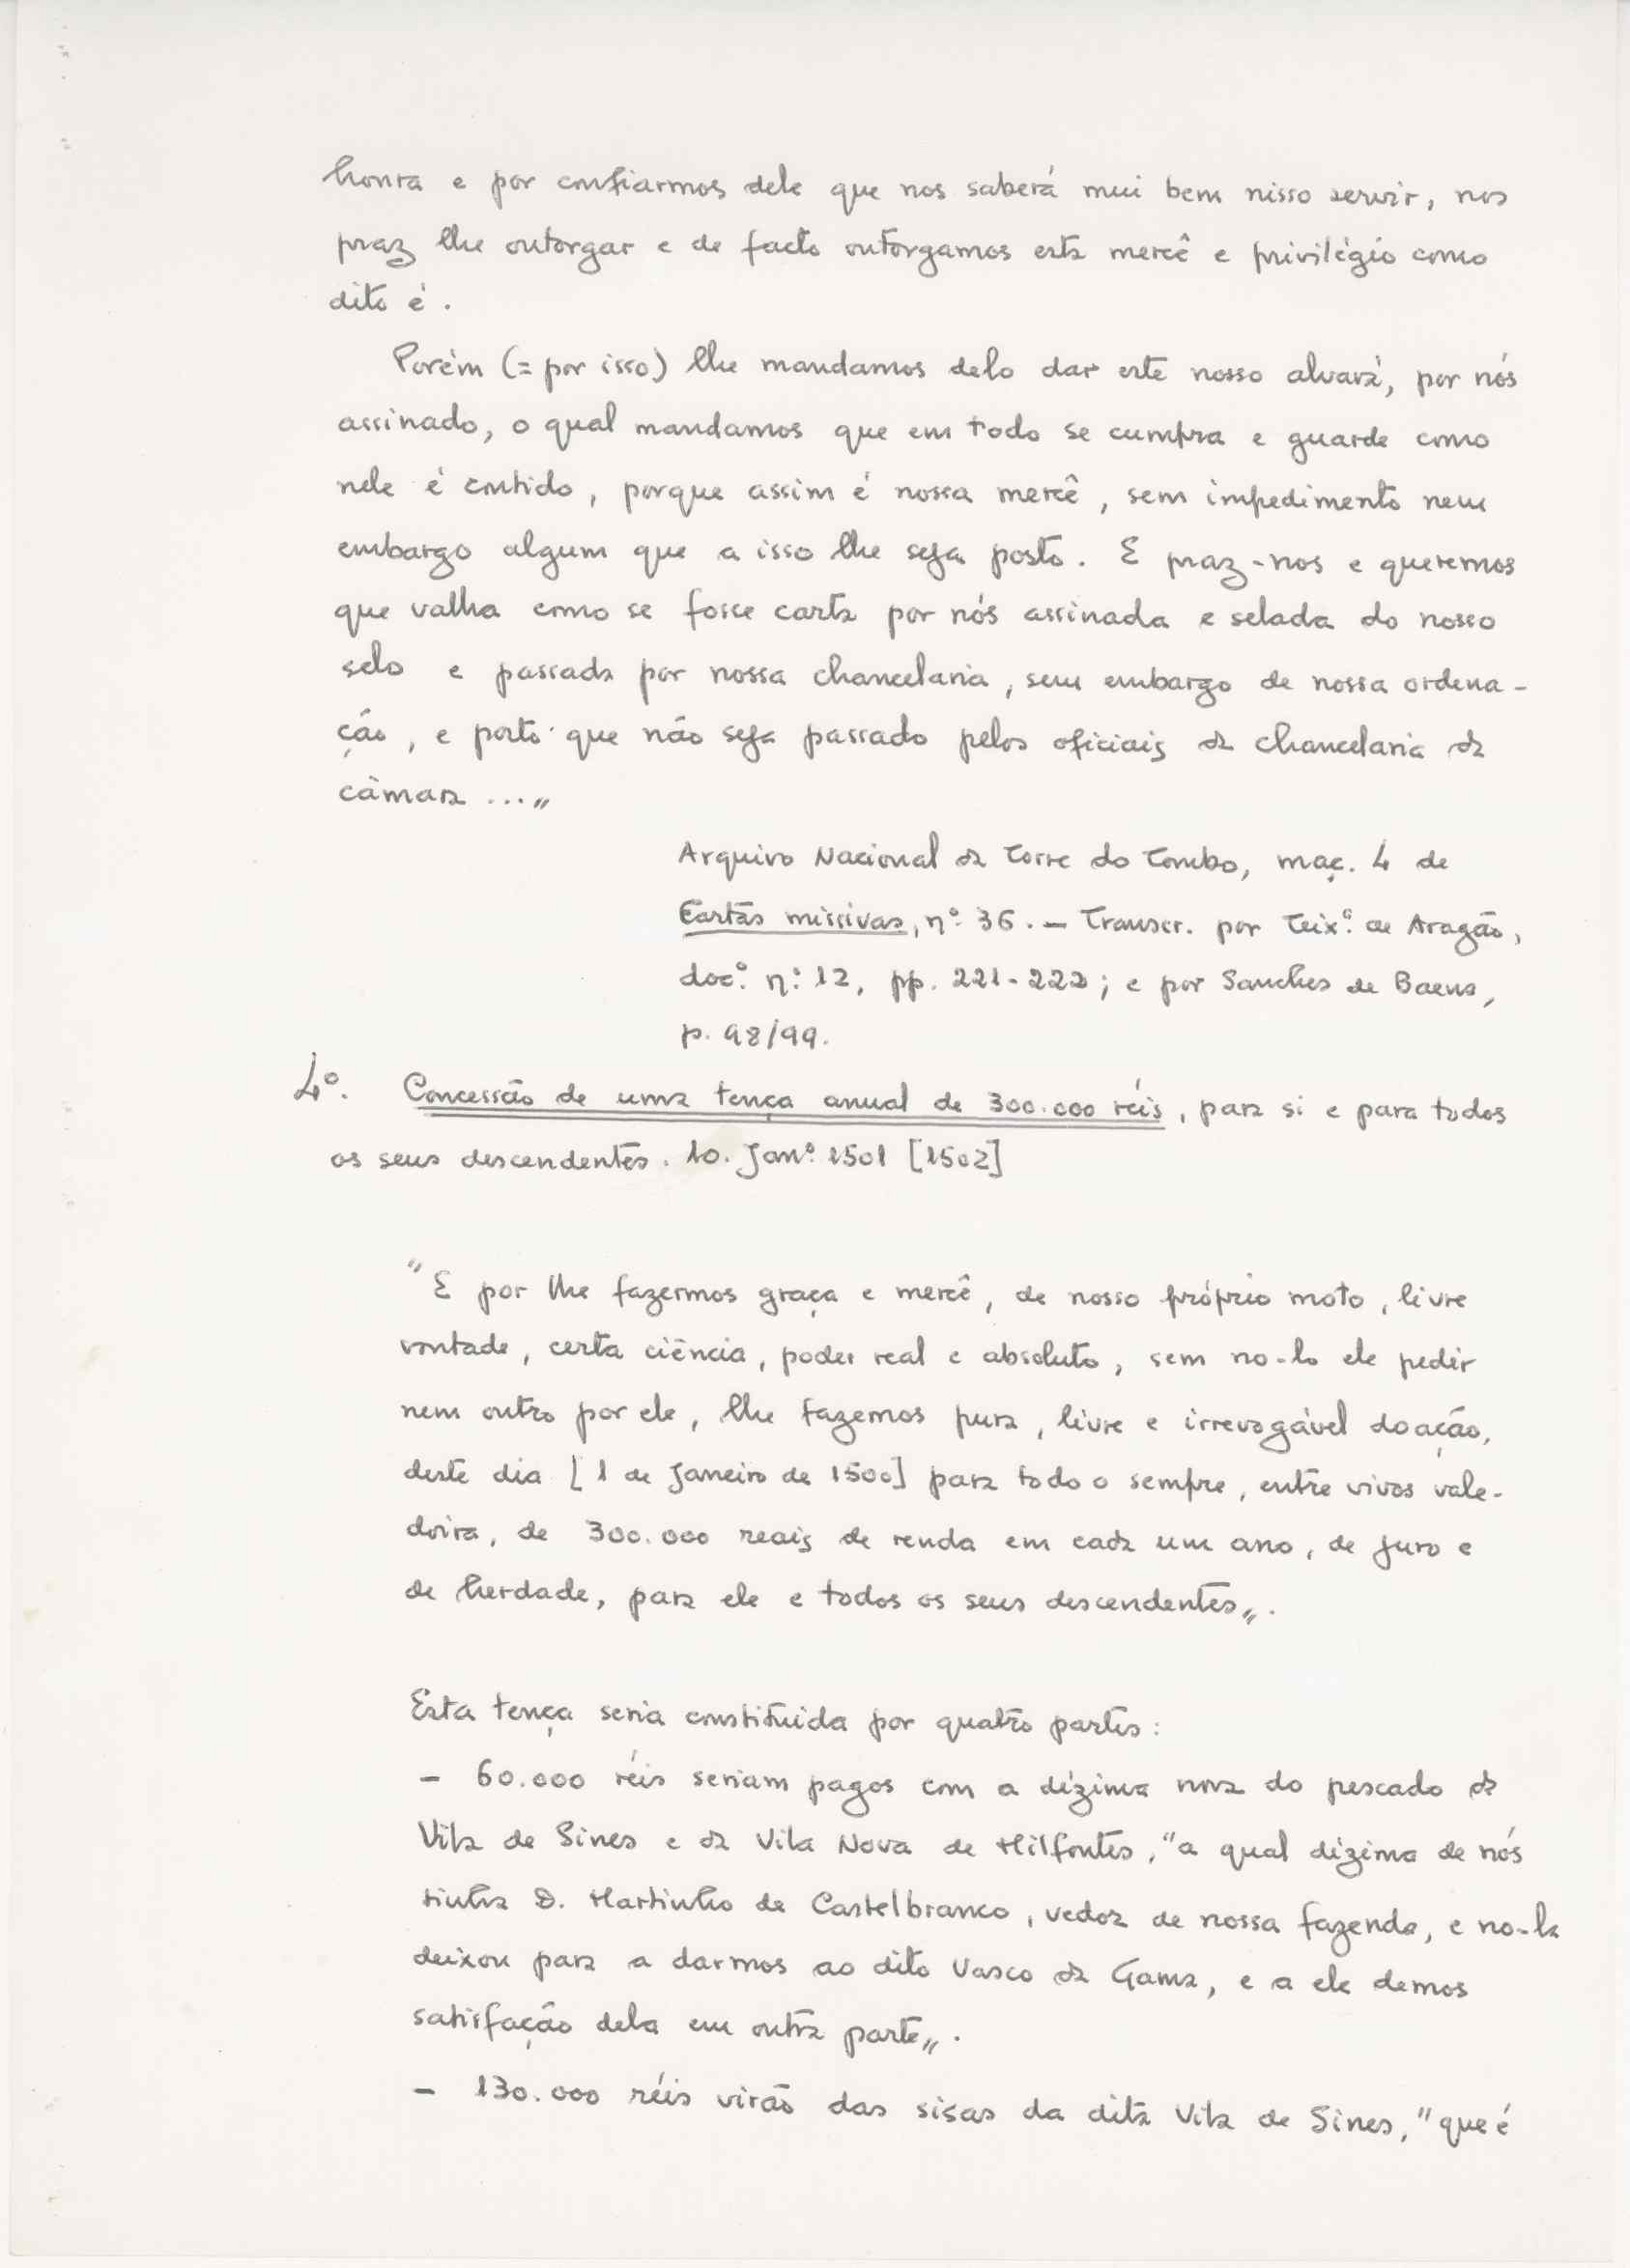 honra e por confiarmos dele que nos saberá mui bem nisso servir, nos
praz lhe outorgar e de facto outorgamos esta mercê e privilégio como
dito é.
Porém (= por isso) lhe mandamos delo dar este nosso alvará, por nós
assinado, o qual mandamos que em todo se cumpra e guarde como
nele é contido, porque assim é nossa mercê, sem impedimento nem
embargo algum que a isso lhe seja posto. E praz-nos e queremos
que valha como se fosse carta por nós assinada e selada do nosso
selo e passada por nossa chancelaria, sem embargo de nossa ordena-
ção, e posto que não seja passado pelos oficiais da chancelaria da
câmara ..."
Arquivo Nacional da Torre do Tombo, maç. 4 de
Cartas missivas, nº 36. — Transcr. por Teixª de Aragão,
docº nº 12, pp. 221-222; e por Sanches de Baena,
p. 98/99.
4º. Concessão de uma tença anual de 300.000 réis, para si e para todos
os seus descendentes. 10. Janº 1501 [1502]
"E por lhe fazermos graça e mercê, de nosso próprio moto, livre
vontade, certa ciência, poder real e absoluto, sem no-lo ele pedir
nem outro por ele, lhe fazemos pura, livre e irrevogável doação,
deste dia [1 de Janeiro de 1500] para todo o sempre, entre vivos vale-
doira, de 300.000 reais de renda em cada um ano, de juro e
de herdade, para ele e todos os seus descendentes".
Esta tença seria constituida por quatro partes:
- 60.000 réis seriam pagos com a dízima nova do pescado da
Vila de Sines e da Vila Nova de Milfontes, "a qual dízima de nós
tinha D. Martinho de Castelbranco, vedor de nossa fazenda, e no-la
deixou para a darmos ao dito Vasco da Gama, e a ele demos
satisfação dela em outra parte".
- 130.000 réis virão das sisas da dita Vila de Sines, "que é